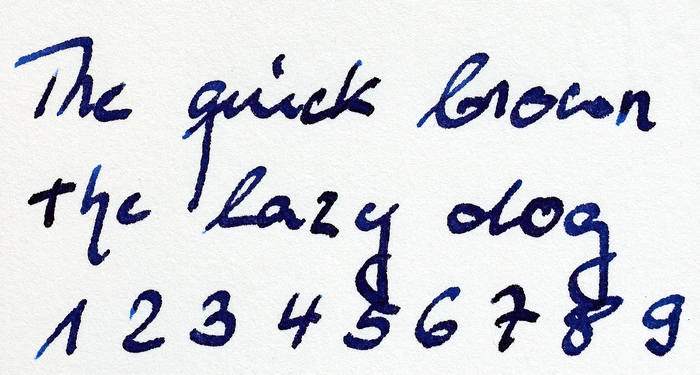 The quick brown
the lazy dog
1 2 3 4 5 6 7 8 9